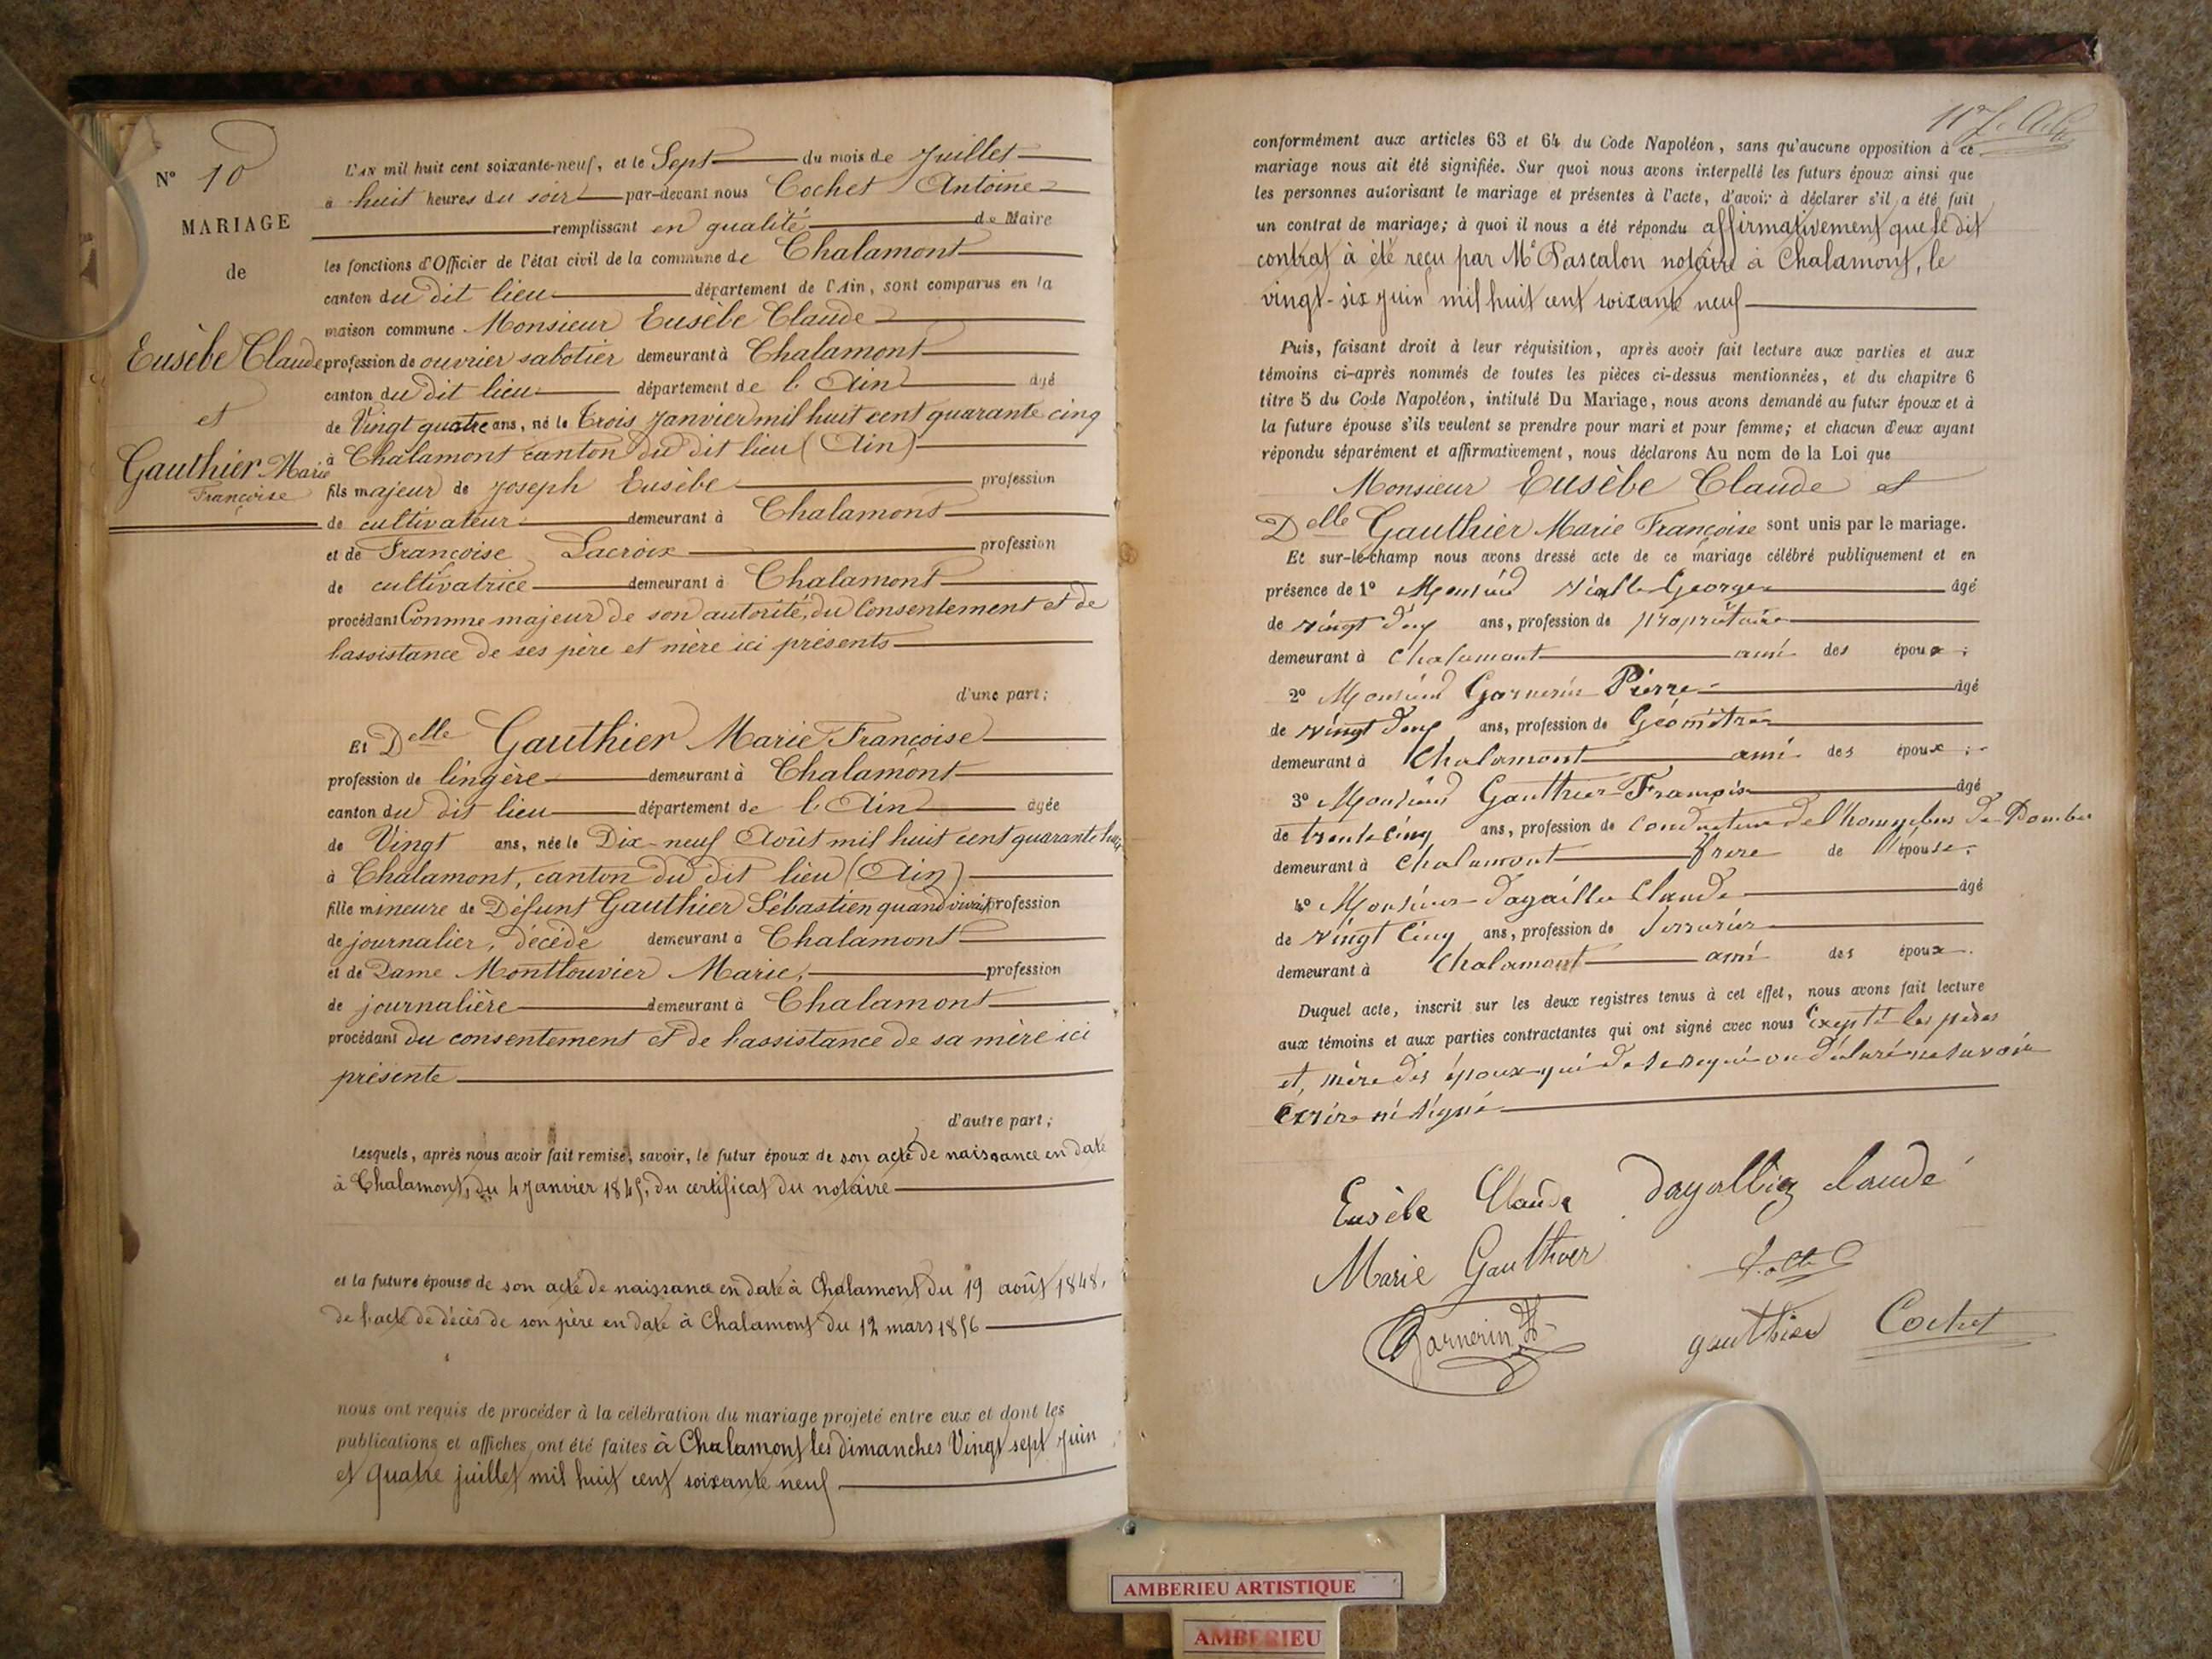 N° 10
MARIAGE
de
Eusèbe Claude
et
Gauthier Marie
Françoise
L'AN mil huit cent soixante-neuf, et le Sept du mois de Juillet
à huit heures du soir par-devant nous Cochet Antoine
remplissant en qualité de Maire
les fonctions d'Officier de l'état civil de la commune de Chalamont
canton du dit lieu département de l'Ain, sont comparus en la
maison commune Monsieur Eusèbe Claude
profession de ouvrier sabotier demeurant à Chalamont
canton du dit lieu département de l'Ain âgé
de Vingt quatre ans, né le Trois Janvier mil huit cent quarante cinq
à Chalamont canton du dit lieu (Ain)
fils majeur de Joseph Eusèbe profession
de cultivateur demeurant à Chalamont
et de Françoise Lacroix profession
de cultivatrice demeurant à Chalamont
procédant Comme majeur de son autorité, du Consentement et de
l'assistance de ses père et mère ici présents
d'une part;
Et Delle Gauthier Marie Françoise
profession de lingère demeurant à Chalamont
canton du dit lieu département de l'Ain âgée
de Vingt ans, née le Dix-neuf Août mil huit cent quarante huit
à Chalamont, canton du dit lieu (Ain)
fille mineure de Défunt Gauthier Sébastien quand vivait profession
de journalier, décédé demeurant à Chalamont
et de Dame Monttouvier Marie, profession
de journalière demeurant à Chalamont
procédant du consentement et de l'assistance de sa mère ici
présente
d'autre part;
Lesquels, après nous avoir fait remise, savoir, le futur époux de son acte de naissance en date
à Chalamont, du 4 Janvier 1845, du certificat du notaire
et la future épouse de son acte de naissance en date à Chalamont du 19 août 1848,
de l'acte de décès de son père en date à Chalamont du 12 mars 1856
nous ont requis de procéder à la célébration du mariage projeté entre eux et dont les
publications et affiches ont été faites à Chalamont les dimanches Vingt sept juin
et quatre juillet mil huit cent soixante neuf
conformément aux articles 63 et 64 du Code Napoléon, sans qu'aucune opposition à ce
mariage nous ait été signifiée. Sur quoi nous avons interpellé les futurs époux ainsi que
les personnes autorisant le mariage et présentes à l'acte, d'avoir à déclarer s'il a été fait
un contrat de mariage; à quoi il nous a été répondu affirmativement que le dit
contrat à été reçu par Me Pascalon notaire à Chalamont, le
vingt-six juin mil huit cent soixante neuf
Puis, faisant droit à leur réquisition, après avoir fait lecture aux parties et aux
témoins ci-après nommés de toutes les pièces ci-dessus mentionnées, et du chapitre 6
titre 5 du Code Napoléon, intitulé Du Mariage, nous avons demandé au futur époux et à
la future épouse s'ils veulent se prendre pour mari et pour femme; et chacun d'eux ayant
répondu séparément et affirmativement, nous déclarons Au nom de la Loi que
Monsieur Eusèbe Claude et
Delle Gauthier Marie Françoise sont unis par le mariage.
Et sur-le-champ nous avons dressé acte de ce mariage célébré publiquement et en
présence de 1° Monsieur George âgé
de vingt ans, profession de propriétaire
demeurant à Chalamont ami des époux;
2° Monsieur Garnerin Pierre âgé
de vingt ans, profession de Géomètre
demeurant à Chalamont ami des époux;
3° Monsieur Gauthier François âgé
de trente cinq ans, profession de Conducteur de Dombes
demeurant à Chalamont frère de l'épouse;
4° Monsieur Dagallier Claude âgé
de vingt cinq ans, profession de Serrurier
demeurant à Chalamont ami des époux.
Duquel acte, inscrit sur les deux registres tenus à cet effet, nous avons fait lecture
aux témoins et aux parties contractantes qui ont signé avec nous Excepté les pères
et mère des époux qui de ce requis on déclaré ne savoir
écrire ni signé
Eusèbe Claude
Dagallier claude
Marie Gauthier
Garnerin
gauthier
Cochet
AMBERIEU ARTISTIQUE
AMBERIEU